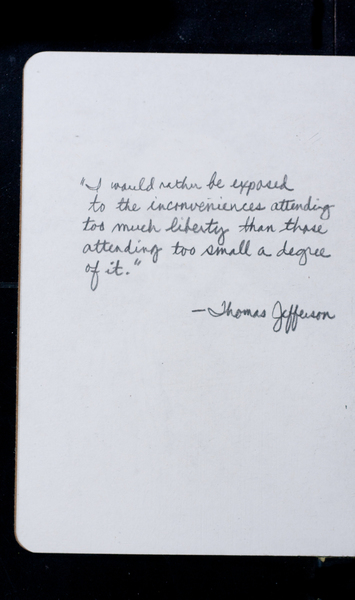 "I would rather be exposed
to the inconveniences attending
too much liberty than those
attending too small a degree
of it."
—Thomas Jefferson